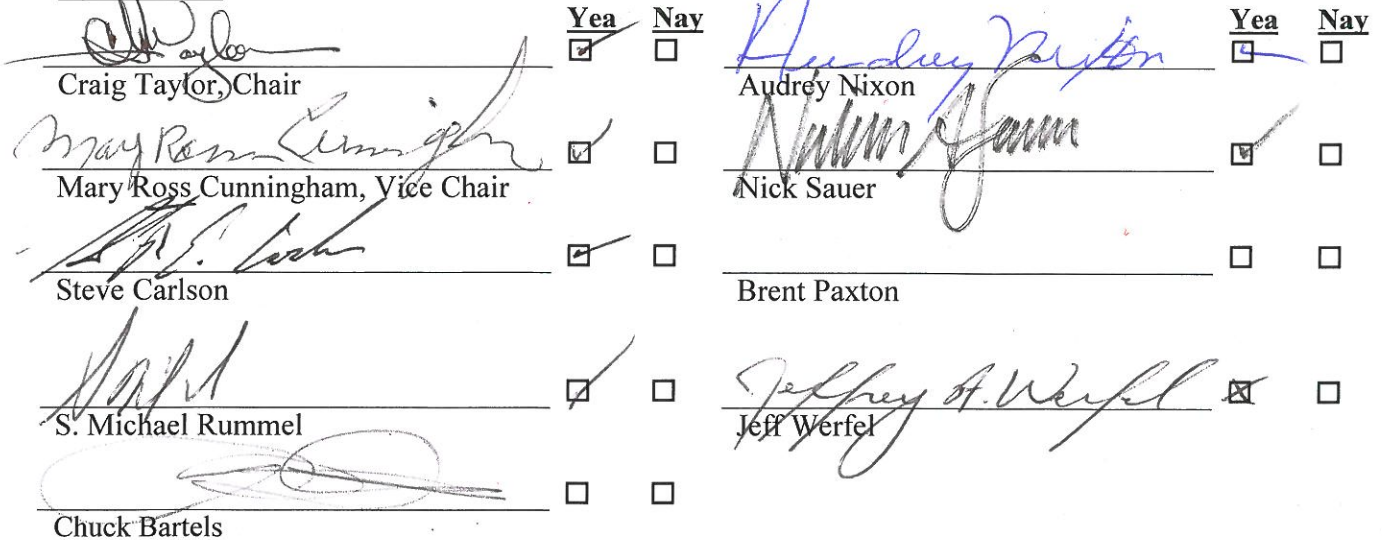 Yea Nay
Craig Taylor
Craig Taylor, Chair
Mary Ross Cunningham
Mary Ross Cunningham, Vice Chair
Steve Carlson
S. Michael Rummel
Chuck Bartels
Yea Nay
Audrey Nixon
Audrey Nixon
Nick Sauer
Brent Paxton
Jeffrey A. Werfel
Jeff Werfel